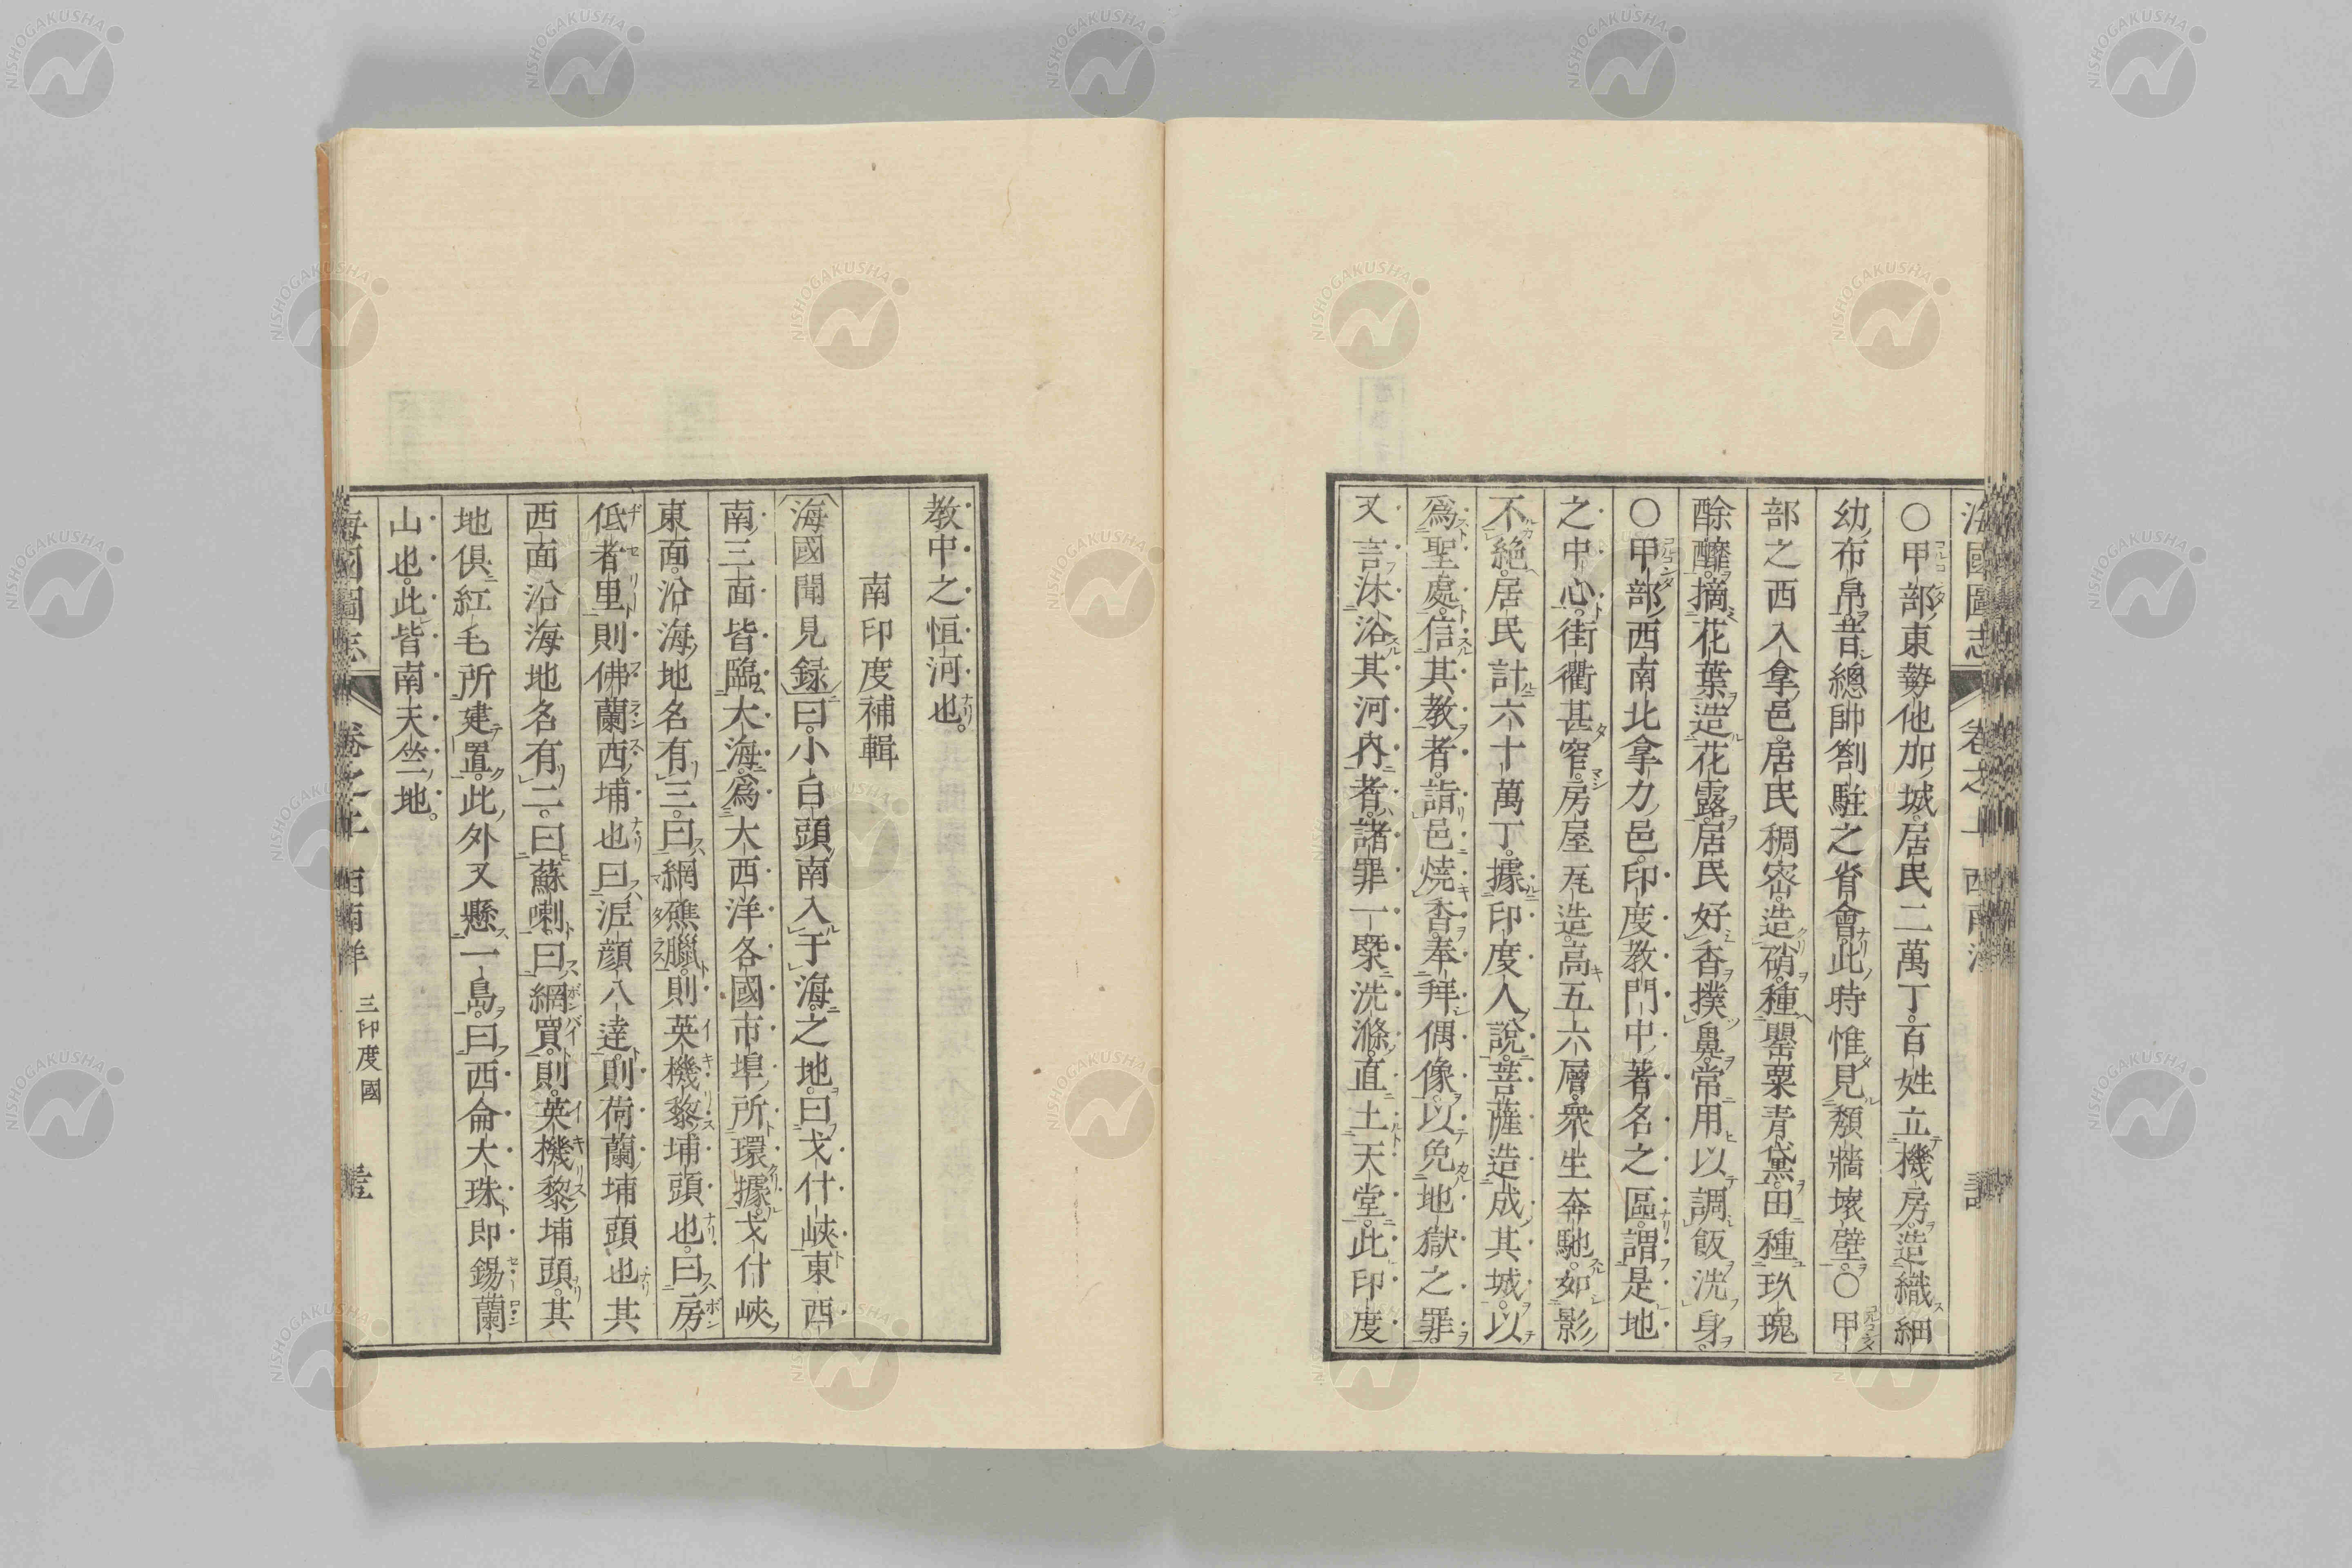 〇甲部東勢他加城。居民二萬丁。百姓立機房。造織細
幼布帛。昔總帥劄駐之省會。此時惟見頽牆壞壁。〇甲
部之西入拿邑。居民稠密。造硝。種罌粟青黛。田種玖瑰
酴醾。摘花葉造花露。居民好香撲鼻。常用以調飯洗身。
〇甲部西南北拿力邑。印度教門中著名之區。謂是地
之中心。街衢甚窄。房屋瓦造。高五六層。衆生奔馳。如影
不絶。居民計六十萬丁。據印度人說。菩薩造成其城。以
爲聖處。信其教者。詣邑燒香。奉拜偶像。以免地獄之罪。
又言沐浴其河內者。諸罪一槩洗滌。直上天堂。此印度
教中之恒河也。
南印度補輯
海國聞見録曰。小白頭南入于海之地。曰戈什峽。東西
南三面皆臨大海。爲大西洋各國市埠所環據。戈什峽
東面沿海地名有三。曰網礁臘。則英機黎埔頭也。曰房
低者里。則佛蘭西埔也。曰泥顔八達。則荷蘭埔頭也。其
西面沿海地名有二。曰蘇喇。曰網買。則英機黎埔頭。其
地俱紅毛所建置。此外又懸一島。曰西侖大珠。即錫蘭
山也。此皆南天竺地。
海國圖志
西南洋
三印度國